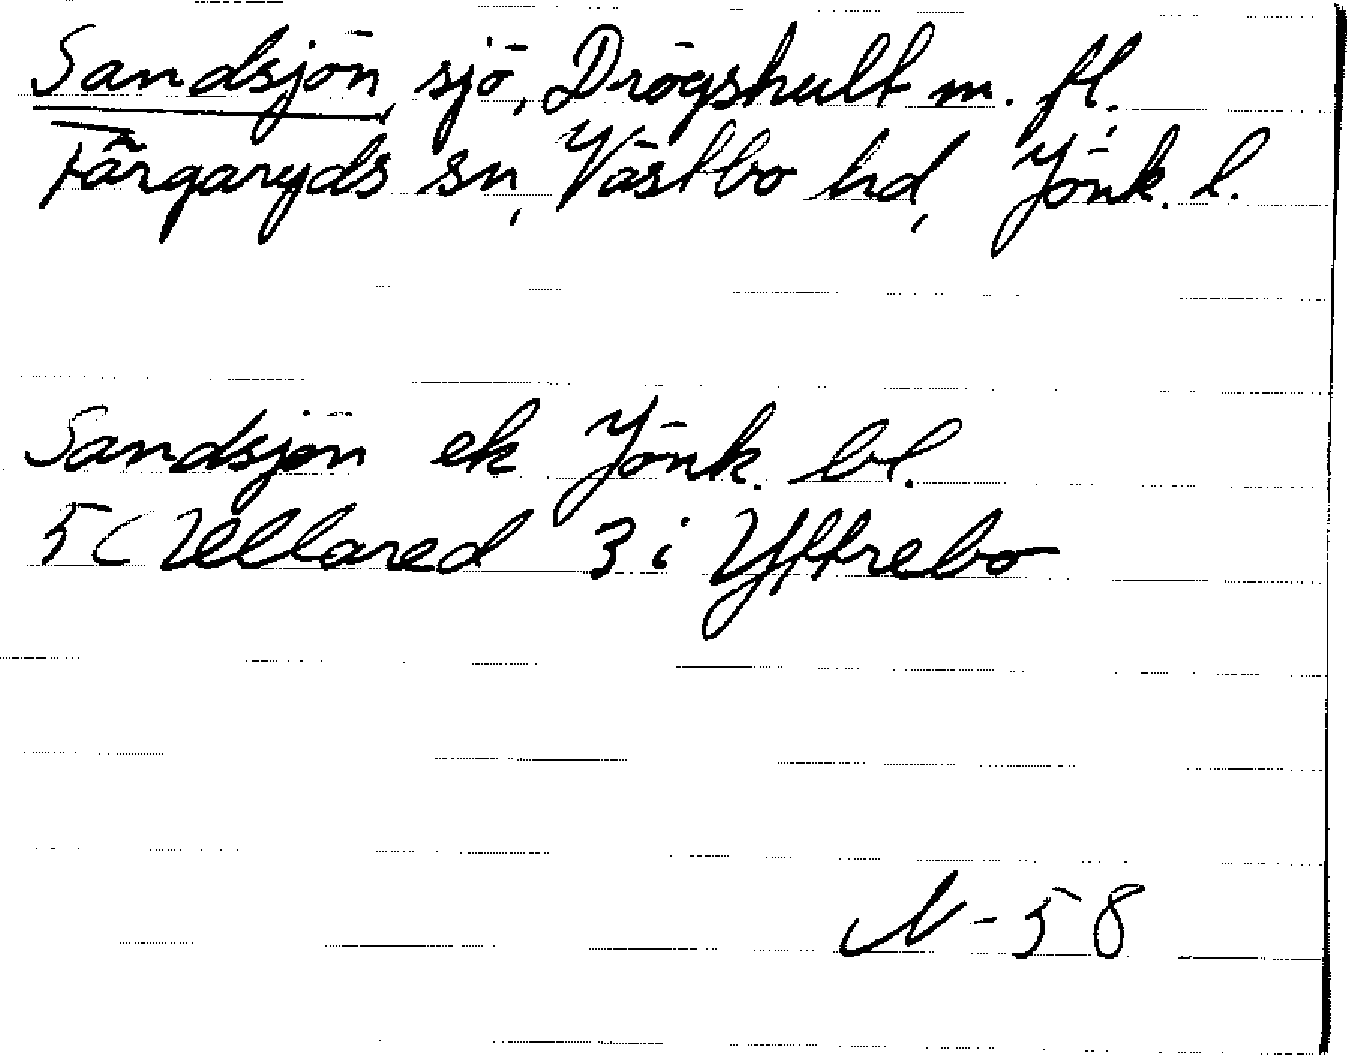 Sandsjön, sjö, Drögshult m. fl.
Färgaryds sn, Västbo hd, Jönk. l.
Sandsjön ek Jönk. bl.
5C Ullared 3 i Yttrebo
N-58